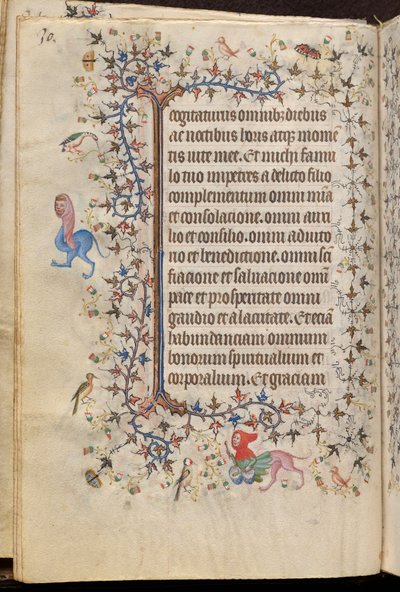 30.
cogitaturis omnib; diebus
ac noctibus horis atq; mome
tis uite mee. Et michi famu
lo tuo impetres a delicto filio
complementum omni mia
et consolacione. omni auxi
lio et consilio. omni adiuto
no et benedictione. omni sci
ficacione et saluacione omi
pace et prosperitate omni
gaudio et alacritate. Et eciā
habundanciam omnium
bonorum spiritualium et
corporalium. Et graciam